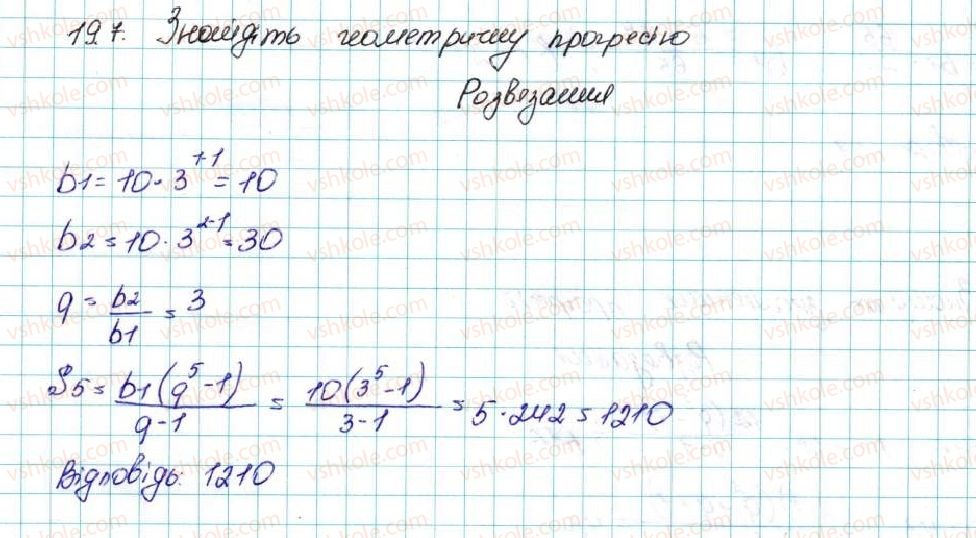 197. Знайдіть геометричну прогресію
Розвязання
b1 = 10 · 3^1-1 = 10
b2 = 10 · 3^2-1 = 30
q = b2/b1 = 3
S5 = b1(q^5-1)/q-1 = 10(3^5-1)/3-1 = 5 · 242 = 1210
Відповідь: 1210